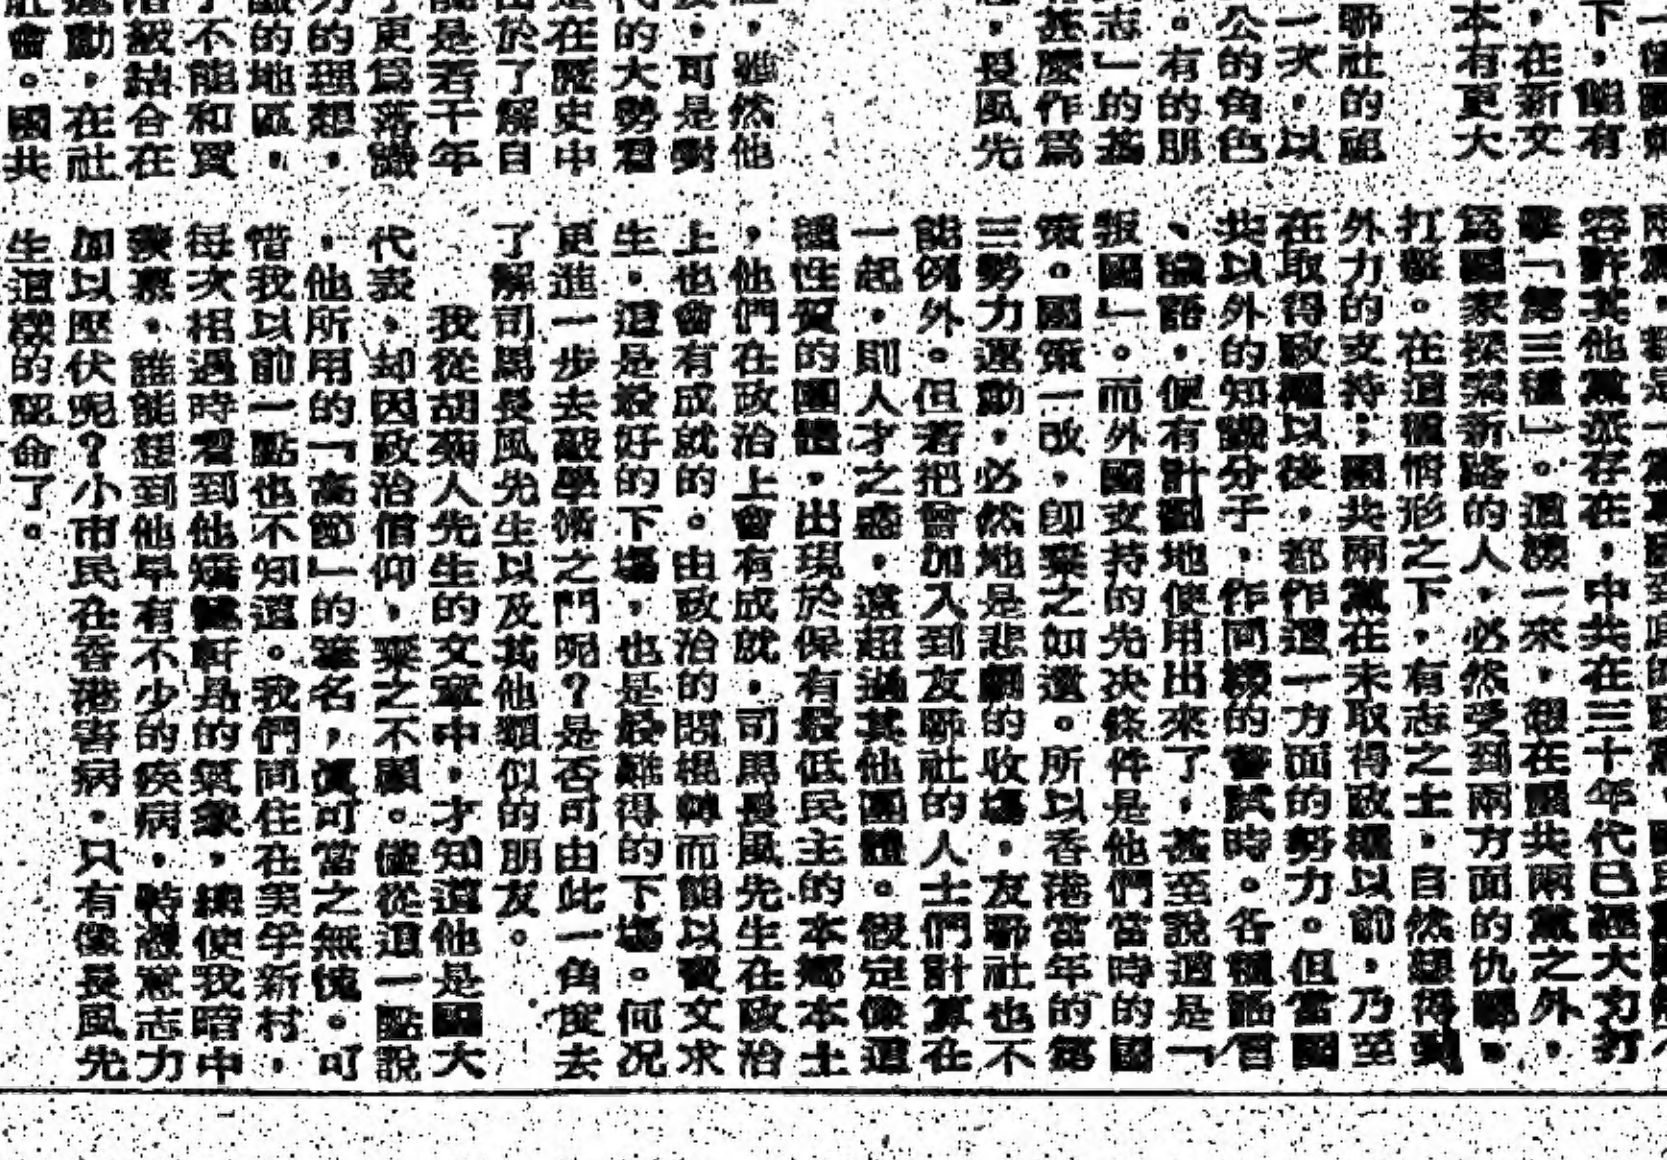 下，能有
，在新文
本有更大
聯社的祖
一次，以
公的角色
。有的朋
志」的基
甚麼作爲
，長風先
雖然他
，可是對
的大勢看
是在歷史中
出於了解自
能是若干年
更爲落識
力的理想，
識的地區，
不能和買
階級結合在
運動，在社
社會。國共
容許其他黨派存在，中共在三十年代已經大力打
擊「第三種」。這樣一來，想在國共兩黨之外，
爲國家探索新路的人，必然受到兩方面的仇視，
打擊。在這種情形之下，有志之士，自然想得到
外力的支持；國共兩黨在未取得政權以前，乃至
在取得政權以後，都作這一方面的努力。但當國
共以外的知識分子，作同樣的嘗試時。各種
、讕語，便有計劃地使用出來了，甚至說這是「
報國」。而外國支持的先決條件是他們當時的國
策。國策一改，卽棄之如遺。所以香港當年的第
三勢力運動，必然地是悲劇的收場，友聯社也不
能例外。但若把曾加入到友聯社的人士們計算在
一起，則人才之盛，遠超過其他團體。假定像這
種性質的團體，出現於保有最低民主的本鄉本土
，他們在政治上會有成就，司馬長風先生在政治
上也會有成就的。由政治的悶棍轉而能以賣文求
生，這是最好的下場，也是最難得的下場。何况
更進一步去敲學術之門呢？是否可由此一角度去
了解司馬長風先生以及其他類似的朋友。
我從胡菊人先生的文章中，才知道他是國大
代表，却因政治信仰，棄之不顧。僅從這一點說
，他所用的「高節」的筆名，眞可當之無愧。可
惜我以前一點也不知道。我們同住在美孚新村，
每次相遇時看到他的氣象，總使我暗中
羨慕，誰能想到他早有不少的疾病，特憑意志力
加以壓伏呢？小市民在香港害病，只有像長風先
生這樣的認命了。